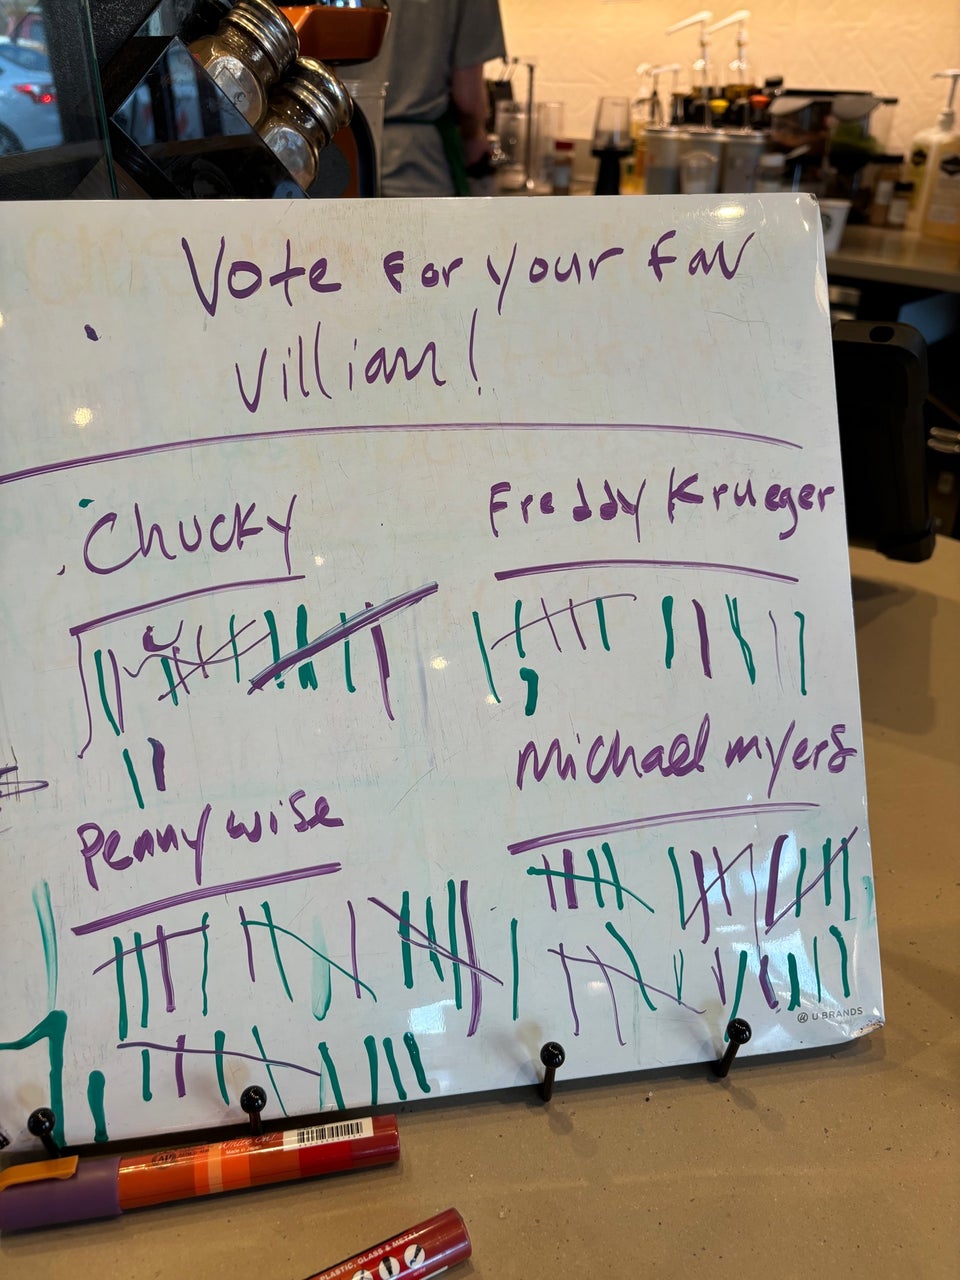 Vote for your fav
Villian!
Chucky
Freddy Krueger
Michael myers
Pennywise
U BRANDS
Made in Japan
PLASTIC, GLASS & METAL